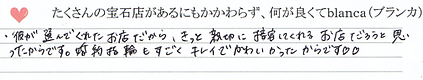 たくさんの宝石店があるにもかかわらず、何が良くてblanca(ブランカ)
・彼が選んでくれたお店だから、きっと親切に接客してくれるお店だろうと思い
ったからです。婚約指輪もすごくキレイでかわいかったからです♡♡